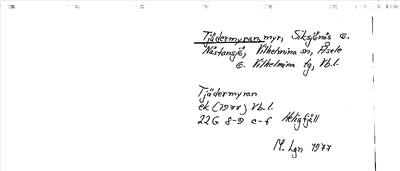 Tjädermyran, myr, Siksjönäs o.
Nästansjö, Vilhelmina sn, Åsele
o. Vilhelmina tg, Vb.l.
Tjädermyran
ek (1977) Vb.l.
22G 8-9 e-f Heligfjäll
M. Lgn 1977